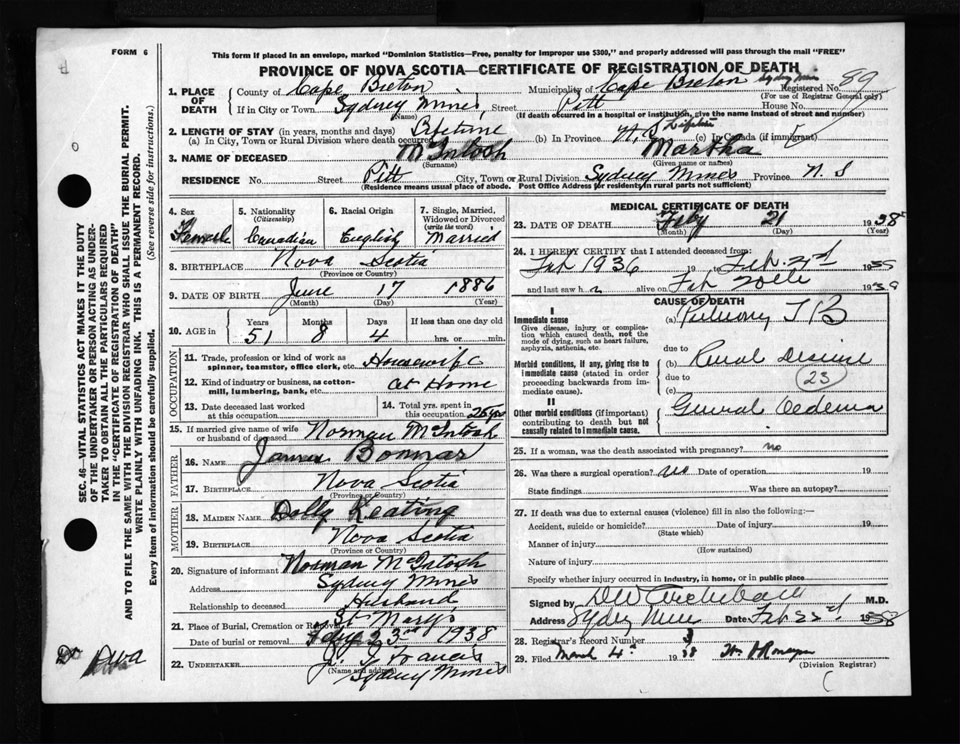 FORM 6
This form if placed in an envelope, marked "Dominion Statistics—Free, penalty for improper use $300," and properly addressed will pass through the mail "FREE"
PROVINCE OF NOVA SCOTIA—CERTIFICATE OF REGISTRATION OF DEATH
1. PLACE OF DEATH
County of Cape Breton Municipality of Cape Breton Registered No. 89
(For use of Registrar General only)
If in City or Town Sydney Mines Street Pitt House No.
(Name) (If death occurred in a hospital or institution, give the name instead of street and number)
2. LENGTH OF STAY (in years, months and days)
(a) In City, Town or Rural Division where death occurred Lifetime (b) In Province N. S. (c) In Canada (if immigrant)
3. NAME OF DECEASED McIntosh Martha
(Surname) (Given name or names)
RESIDENCE No. Street Pitt City, Town or Rural Division Sydney Mines Province N. S
(Residence means usual place of abode. Post Office Address for residents in rural parts not sufficient)
4. Sex Female
5. Nationality (Citizenship) Canadian
6. Racial Origin English
7. Single, Married, Widowed or Divorced (write the word) Married
8. BIRTHPLACE Nova Scotia
(Province or Country)
9. DATE OF BIRTH June 17 1886
(Month) (Day) (Year)
10. AGE in Years Months Days If less than one day old
51 8 4 hrs. or min.
OCCUPATION
11. Trade, profession or kind of work as spinner, teamster, office clerk, etc. Housewife
12. Kind of industry or business, as cotton-mill, lumbering, bank, etc. at Home
13. Date deceased last worked at this occupation
14. Total yrs. spent in this occupation 25 yrs
15. If married give name of wife or husband of deceased Norman McIntosh
FATHER
16. NAME James Bonnar
17. BIRTHPLACE Nova Scotia
(Province or Country)
MOTHER
18. MAIDEN NAME Dolly Keating
19. BIRTHPLACE Nova Scotia
(Province or Country)
20. Signature of informant Norman McIntosh
Address Sydney Mines
Relationship to deceased Husband
21. Place of Burial, Cremation or Removal St Marys
Date of burial or removal Feby 23rd 1938
22. UNDERTAKER J. J. Francis
(Name and address) Sydney Mines
MEDICAL CERTIFICATE OF DEATH
23. DATE OF DEATH Feby 21 1938
(Month) (Day) (Year)
24. I HEREBY CERTIFY that I attended deceased from:
Feb 1936 19 to Feb 21st 1938
and last saw h alive on Feb 1938
CAUSE OF DEATH
I
Immediate cause
Give disease, injury or complication which caused death, not the mode of dying, such as heart failure, asphyxia, asthenia, etc.
(a) Pulmonary TB
due to
Morbid conditions, if any, giving rise to immediate cause (stated in order proceeding backwards from immediate cause).
(b) Renal Disease
due to 23
(c)
II
Other morbid conditions (if important) contributing to death but not causally related to immediate cause.
General Oedema
25. If a woman, was the death associated with pregnancy? no
26. Was there a surgical operation? Date of operation 19
State findings Was there an autopsy?
27. If death was due to external causes (violence) fill in also the following:—
Accident, suicide or homicide? Date of injury 19
(State which)
Manner of injury
(How sustained)
Nature of injury
Specify whether injury occurred in industry, in home, or in public place
Signed by DW Archibald M.D.
Address Sydney Mines Date Feb 22nd 1938
28. Registrar's Record Number
29. Filed March 4 1938
(Division Registrar)
SEC. 46—VITAL STATISTICS ACT MAKES IT THE DUTY
OF THE UNDERTAKER OR PERSON ACTING AS UNDER-
TAKER TO OBTAIN ALL THE PARTICULARS REQUIRED
IN THE "CERTIFICATE OF REGISTRATION OF DEATH"
AND TO FILE THE SAME WITH THE DIVISION REGISTRAR WHO SHALL ISSUE THE BURIAL PERMIT.
WRITE PLAINLY WITH UNFADING INK. THIS IS A PERMANENT RECORD.
Every item of information should be carefully supplied. (See reverse side for instructions.)